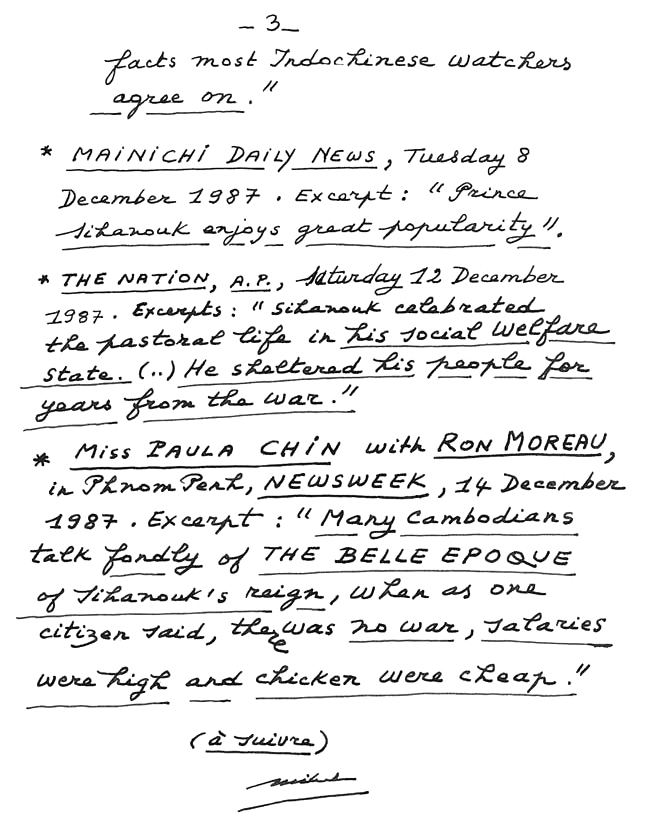 – 3 –
facts most Indochinese watchers
agree on."
* MAINICHI DAILY NEWS, Tuesday 8
December 1987. Excerpt : "Prince
Sihanouk enjoys great popularity".
* THE NATION, A.P., Saturday 12 December
1987. Excerpts : "Sihanouk celebrated
the pastoral life in his social welfare
state. (..) He sheltered his people for
years from the war."
* Miss PAULA CHIN with RON MOREAU,
in Phnom Penh, NEWSWEEK, 14 December
1987. Excerpt : "Many Cambodians
talk fondly of THE BELLE EPOQUE
of Sihanouk's reign, when as one
citizen said, there was no war, salaries
were high and chicken were cheap."
(à suivre)